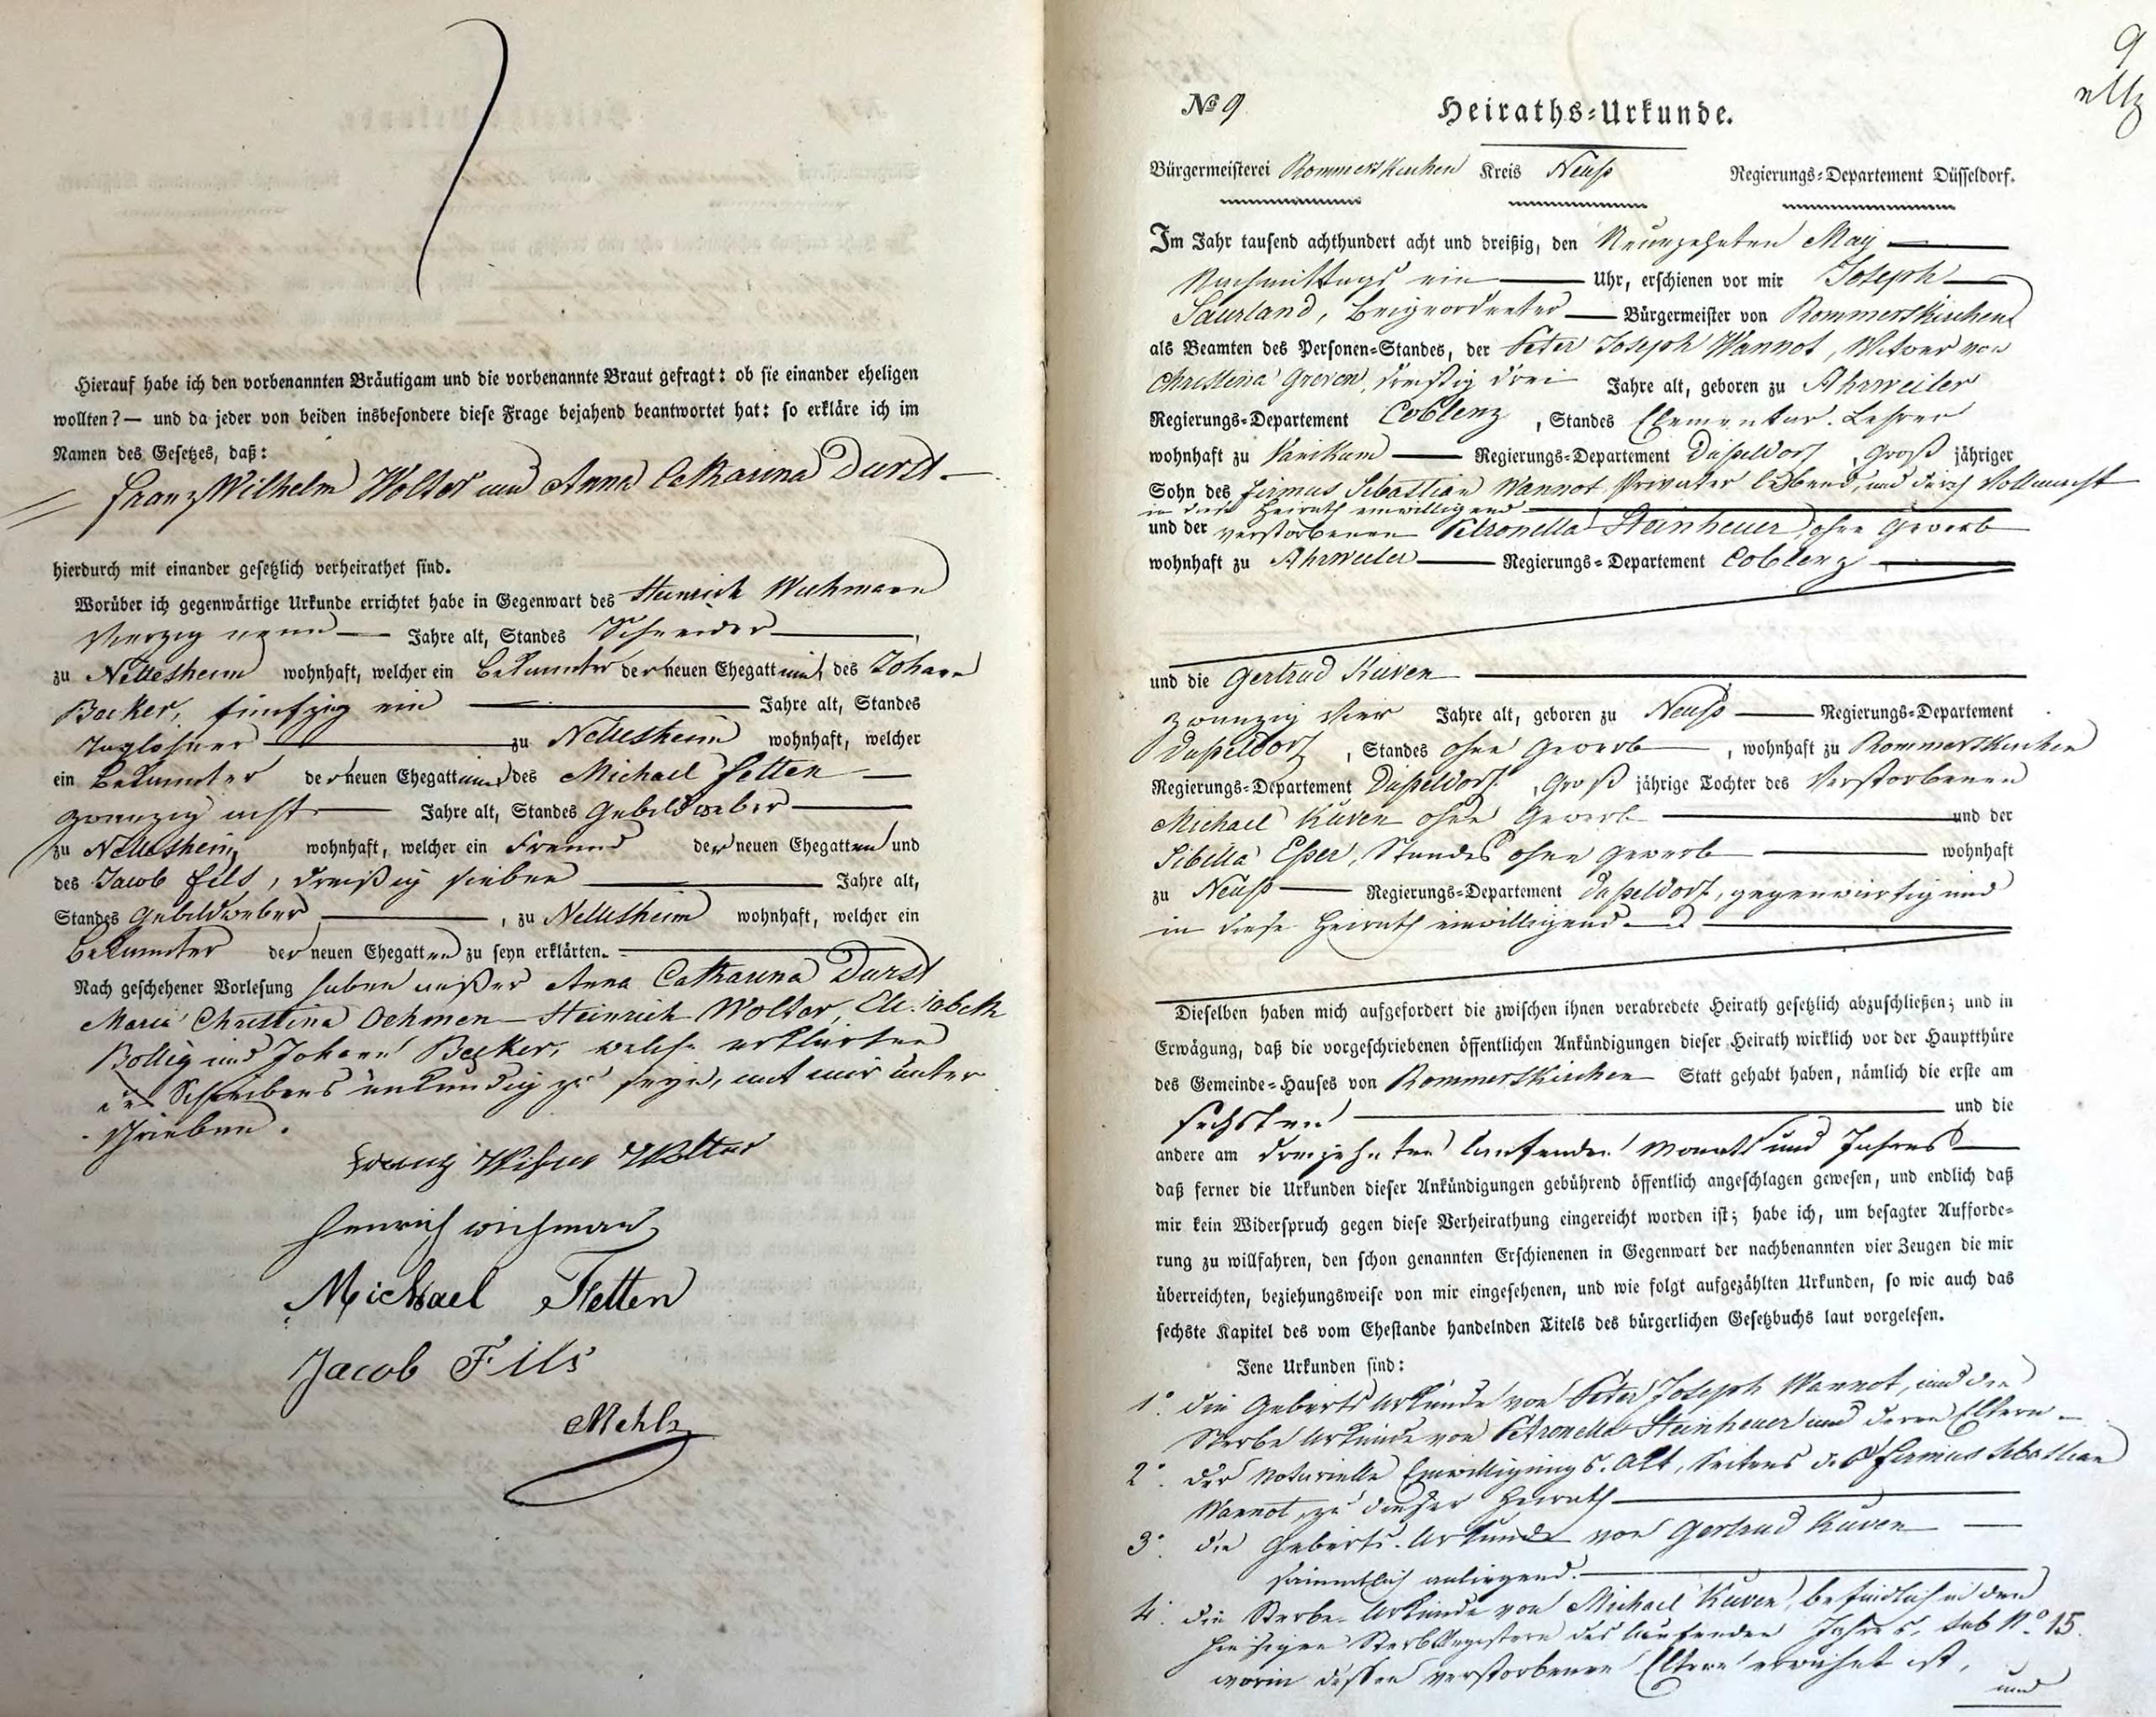 Hierauf habe ich den vorbenannten Bräutigam und die vorbenannte Braut gefragt: ob sie einander eheligen
wollten? — und da jeder von beiden insbesondere diese Frage bejahend beantwortet hat: so erkläre ich im
Namen des Gesetzes, daß:
Franz Wilhelm Wolter und Anna Catharina Durst
hierdurch mit einander gesetzlich verheirathet sind.
Worüber ich gegenwärtige Urkunde errichtet habe in Gegenwart des Heinrich Wichmann
vierzig neun Jahre alt, Standes Schneider,
zu Nettesheim wohnhaft, welcher ein Bekannter der neuen Ehegattinn, des Johann
Becker, fünfzig ein Jahre alt, Standes
Taglöhner zu Nettesheim wohnhaft, welcher
ein Bekannter der neuen Ehegattinn des Michael Fetten
zwanzig acht Jahre alt, Standes Gebildweber
zu Nettesheim wohnhaft, welcher ein Freund der neuen Ehegatten und
des Jacob Fils, dreißig sieben Jahre alt,
Standes Gebildweber, zu Nettesheim wohnhaft, welcher ein
Bekannter der neuen Ehegatten zu seyn erklärten.
Nach geschehener Vorlesung haben außer Anna Catharina Durst
Maria Christina Oehmen Heinrich Wolter, Elisabeth
Bollig und Johann Becker, welche erklärten
des Schreibens unkundig zu seyn, mit mir unter
schrieben.
Franz Wilhm Wolter
Henrich wichman
Michael Fetten
Jacob Fils
Mehlz
9
№ 9 Heiraths-Urkunde.
Bürgermeisterei Rommerskirchen Kreis Neuss Regierungs-Departement Düsseldorf.
Im Jahr tausend achthundert acht und dreißig, den Neunzehnten May
Nachmittags ein Uhr, erschienen vor mir Joseph
Saurland, Beigeordneter Bürgermeister von Rommerskirchen
als Beamten des Personen-Standes, der Peter Joseph Wannot, Witwer von
Christina Greven, dreißig drei Jahre alt, geboren zu Ahrweiler
Regierungs-Departement Coblenz, Standes Elementar-Lehrer
wohnhaft zu Vanikum Regierungs-Departement Düsseldorf, Groß jähriger
Sohn des Firmus Sebastian Wannot Privater lebend, und durch Vollmacht
in diese Heirath einwilligend
und der verstorbenen Petronella Steinheuer, ohne Gewerb
wohnhaft zu Ahrweiler Regierungs-Departement Coblenz
und die Gertrud Küven
zwanzig vier Jahre alt, geboren zu Neuss Regierungs-Departement
Düsseldorf, Standes ohne Gewerb, wohnhaft zu Rommerskirchen
Regierungs-Departement Düsseldorf, Groß jährige Tochter des verstorbenen
Michael Küven ohne Gewerb und der
Sibilla Esser, Standes ohne Gewerb wohnhaft
zu Neuss Regierungs-Departement Düsseldorf, gegenwärtig und
in diese Heirath einwilligend.
Dieselben haben mich aufgefordert die zwischen ihnen verabredete Heirath gesetzlich abzuschließen; und in
Erwägung, daß die vorgeschriebenen öffentlichen Ankündigungen dieser Heirath wirklich vor der Hauptthüre
des Gemeinde-Hauses von Rommerskirchen Statt gehabt haben, nämlich die erste am
sechsten und die
andere am dreizehnten laufenden Monats und Jahres
daß ferner die Urkunden dieser Ankündigungen gebührend öffentlich angeschlagen gewesen, und endlich daß
mir kein Widerspruch gegen diese Verheirathung eingereicht worden ist; habe ich, um besagter Aufforde-
rung zu willfahren, den schon genannten Erschienenen in Gegenwart der nachbenannten vier Zeugen die mir
überreichten, beziehungsweise von mir eingesehenen, und wie folgt aufgezählten Urkunden, so wie auch das
sechste Kapitel des vom Ehestande handelnden Titels des bürgerlichen Gesetzbuchs laut vorgelesen.
Jene Urkunden sind:
1° die Geburts Urkunde von Peter Joseph Wannot, und die
Sterbe Urkunde von Petronella Steinheuer und deren Eltern
2° der Notarielle Einwilligungs-Akt, Seitens des Firmus Sebastian
Wannot zu dieser Heirath
3° die Geburts-Urkunde von Gertrud Küven
sämmtlich anliegend.
4° die Sterbe-Urkunde von Michael Küven, befindlich in den
hiesigen Sterberegistern des laufenden Jahres, sub N° 15.
worin dessen verstorbenen Eltern erwähnt ist,
und